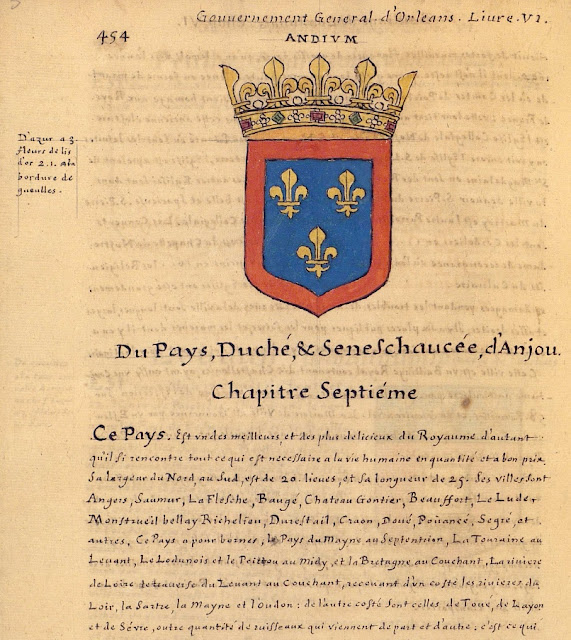 Gouvernement General d'Orleans. Liure. VI.
454
ANDIVM
D'azur a 3
fleurs de lis
d'or 2.1. a la
bordure de
gueulles.
Du Pays, Duché, & Seneschaucée, d'Anjou.
Chapitre Septiéme
Ce Pays. Est vn des meilleurs, et des plus delicieux du Royaume d'autant
qu'il si rencontre tout ce qui est necessaire a la vie humaine en quantité et a bon prix.
Sa largeur du Nord, au Sud, est de 20. lieues, et sa longueur de 25. Ses villes sont
Angers, Saumur, La Flesche, Baugé, Chateau Gontier, Beauffort, Le Lude,
Monstrueil bellay Richelieu, Durestail, Craon, Doué, Poüancé, Segré, et
autres. Ce Pays a pour bornes, le Pays du Mayne au Septentrion, La Touraine au
Leuant, Le Lodunois et le Poittou au Midy, et la Bretagne au Couchant, La riuiere
de Loire de trauerse du Leuant au Couchant, receuant d'vn costé les riuieres du
Loir, la Sartre, la Mayne et l'oudon: de l'autre costé sont celles, de Toué, de Layon
et de Sévre, outre quantité de ruisseaux qui viennent de part et d'autre; c'est ce qui